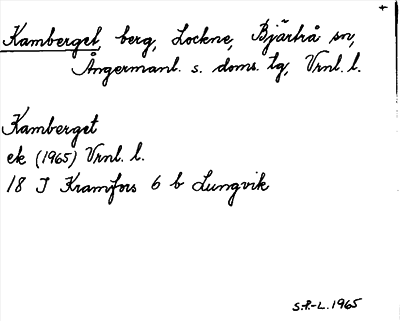 Kamberget, berg, Lockne, Bjärtrå sn,
Ångermanl. s. doms. tg, Vrnl. l.
Kamberget
ek (1965) Vrnl. l.
18 J Kramfors 6 b Lungvik
S.P.-L. 1965